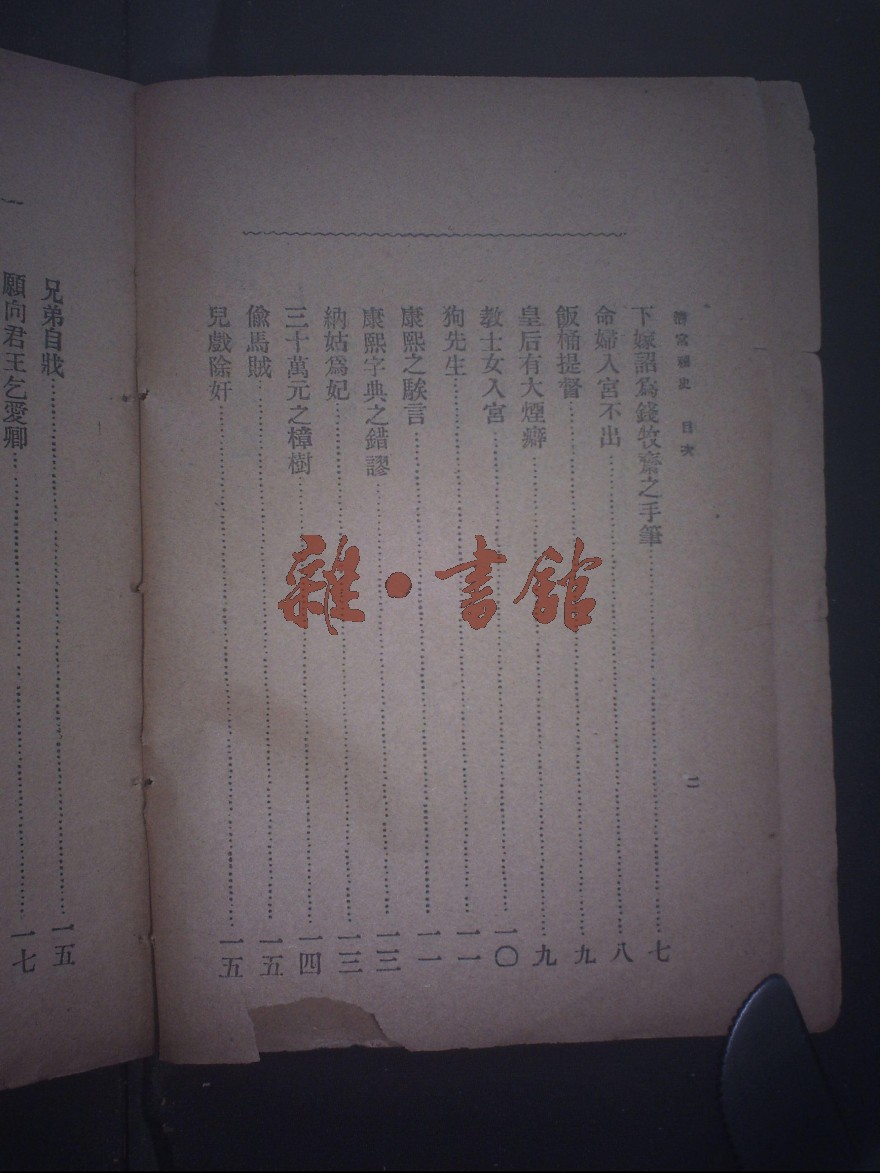 清宮秘史 目次
二
下嫁詔爲錢牧齋之手筆……七
命婦入宮不出……八
飯桶提督……九
皇后有大煙癖……九
教士女入宮……一〇
狗先生……一一
康熙之騃言……一一
康熙字典之錯謬……一三
納姑爲妃……一三
三十萬元之樟樹……一四
偸馬賊……一五
兒戲除奸……一五
兄弟自戕……一五
願向君王乞愛卿……一七
雜·書館